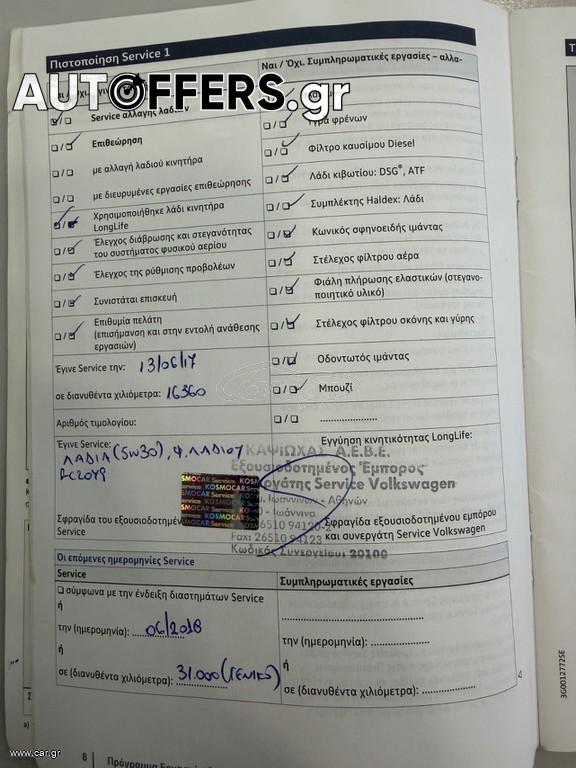 Πιστοποίηση Service 1
Ναι / Όχι. Συμπληρωματικές εργασίες – αλλα-
AUTOFFERS.gr
Service αλλαγής λαδιών
Υγρά φρένων
Επιθεώρηση
Φίλτρο καυσίμου Diesel
με αλλαγή λαδιού κινητήρα
Λάδι κιβωτίου: DSG®, ATF
με διευρυμένες εργασίες επιθεώρησης
Συμπλέκτης Haldex: Λάδι
Χρησιμοποιήθηκε λάδι κινητήρα
LongLife
Κωνικός σφηνοειδής ιμάντας
Έλεγχος διάβρωσης και στεγανότητας
του συστήματος φυσικού αερίου
Στέλεχος φίλτρου αέρα
Έλεγχος της ρύθμισης προβολέων
Φιάλη πλήρωσης ελαστικών (στεγανο-
ποιητικό υλικό)
Συνιστάται επισκευή
Στέλεχος φίλτρου σκόνης και γύρης
Επιθυμία πελάτη
(επισήμανση και στην εντολή ανάθεσης
εργασιών)
Οδοντωτός ιμάντας
Έγινε Service την: 13/06/17
Μπουζί
σε διανυθέντα χιλιόμετρα: 16360
Αριθμός τιμολογίου:
....................
Έγινε Service:
ΛΑΔΙΑ (5W30), Φ. ΛΑΔΙΟΥ
Εγγύηση κινητικότητας LongLife:
ΚΑΨΙΩΧΑΣ Α.Ε.Β.Ε.
Εξουσιοδοτημένος Έμπορος
Service Volkswagen
Ιωαννίνων - Αθηνών
- Ιωάννινα
26510 94120-2
Fax: 26510 94123
Κωδικός Συνεργείου: 20100
KOSMOCAR Service
Σφραγίδα του εξουσιοδοτημέν
Service
Σφραγίδα εξουσιοδοτημένου εμπόρου
και συνεργάτη Service Volkswagen
Οι επόμενες ημερομηνίες Service
Service
Συμπληρωματικές εργασίες
σύμφωνα με την ένδειξη διαστημάτων Service
ή
την (ημερομηνία): 06/2018
την (ημερομηνία): ................
ή
ή
σε (διανυθέντα χιλιόμετρα): 31.000 (ΓΕΝΙΚΟ)
σε (διανυθέντα χιλιόμετρα): ................
3G0012772SE
www.car.gr
6
Πρόγραμμα